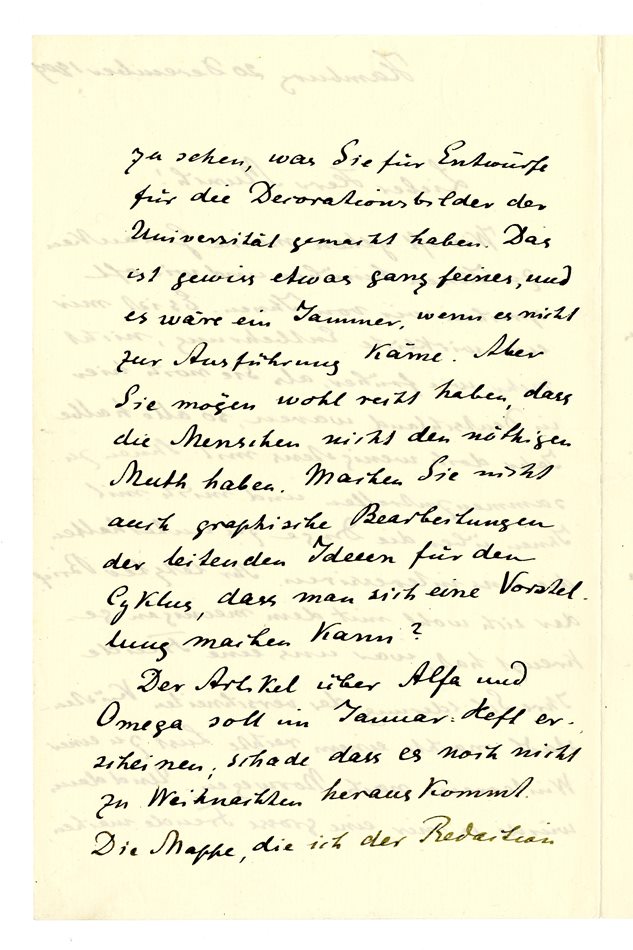 zu sehen, was Sie für Entwürfe
für die Decorationsbilder der
Universität gemacht haben. Das
ist gewiss etwas ganz feines, und
es wäre ein Jammer, wenn es nicht
zur Ausführung käme. Aber
Sie mögen wohl recht haben, dass
die Menschen nicht den nöthigen
Muth haben. Machen Sie nicht
auch graphische Bearbeitungen
der leitenden Ideeen für den
Cyklus, dass man sich eine Vorstel-
lung machen kann?
Der Artikel über Alfa und
Omega soll im Januar-Heft er-
scheinen, schade dass es noch nicht
zu Weihnachten herauskommt.
Die Mappe, die ich der Redaction
Hamburg 20 December 1909